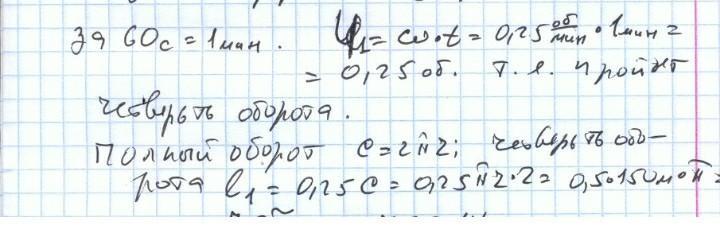 за 60с = 1мин. φ₁ = ω·t = 0,25 об/мин · 1мин =
= 0,25 об. т.е. пройдёт
четверть оборота.
Полный оборот C = 2πr; четверть обо-
рота l₁ = 0,25 C = 0,25πr·2 = 0,5·150м·π =